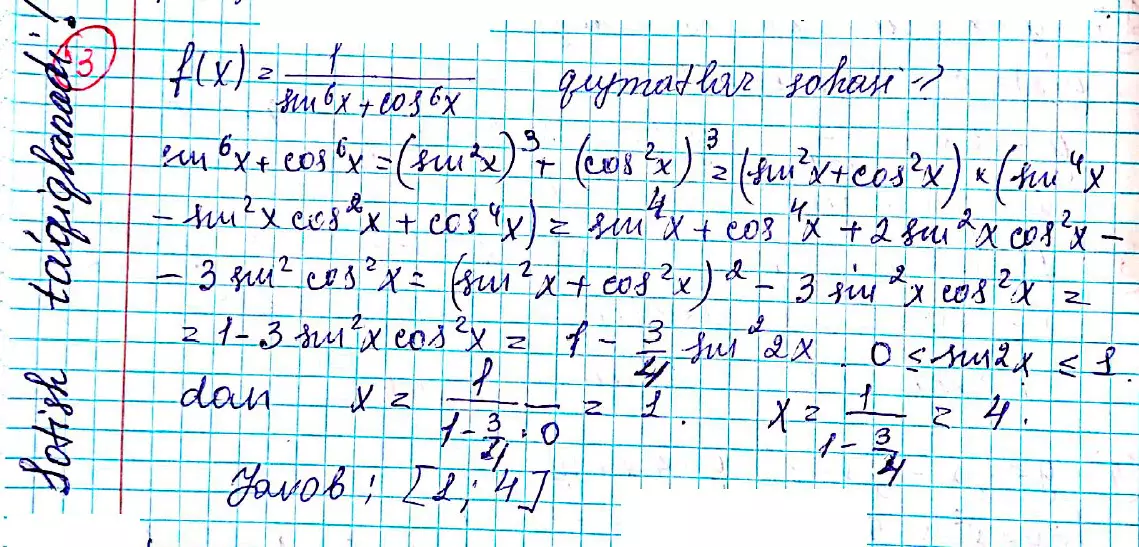 Sotish táqiqlanadi!
3
f(x) = 1/(sin⁶x + cos⁶x) qiymatlar sohasi - ?
sin⁶x + cos⁶x = (sin²x)³ + (cos²x)³ = (sin²x + cos²x) × (sin⁴x
- sin²x cos²x + cos⁴x) = sin⁴x + cos⁴x + 2 sin²x cos²x -
- 3 sin² cos²x = (sin²x + cos²x)² - 3 sin²x cos²x =
= 1 - 3 sin²x cos²x = 1 - 3/4 sin²2x. 0 ≤ sin2x ≤ 1
dan x = 1/(1 - 3/4 · 0) = 1. x = 1/(1 - 3/4) = 4.
Javob: [1; 4]